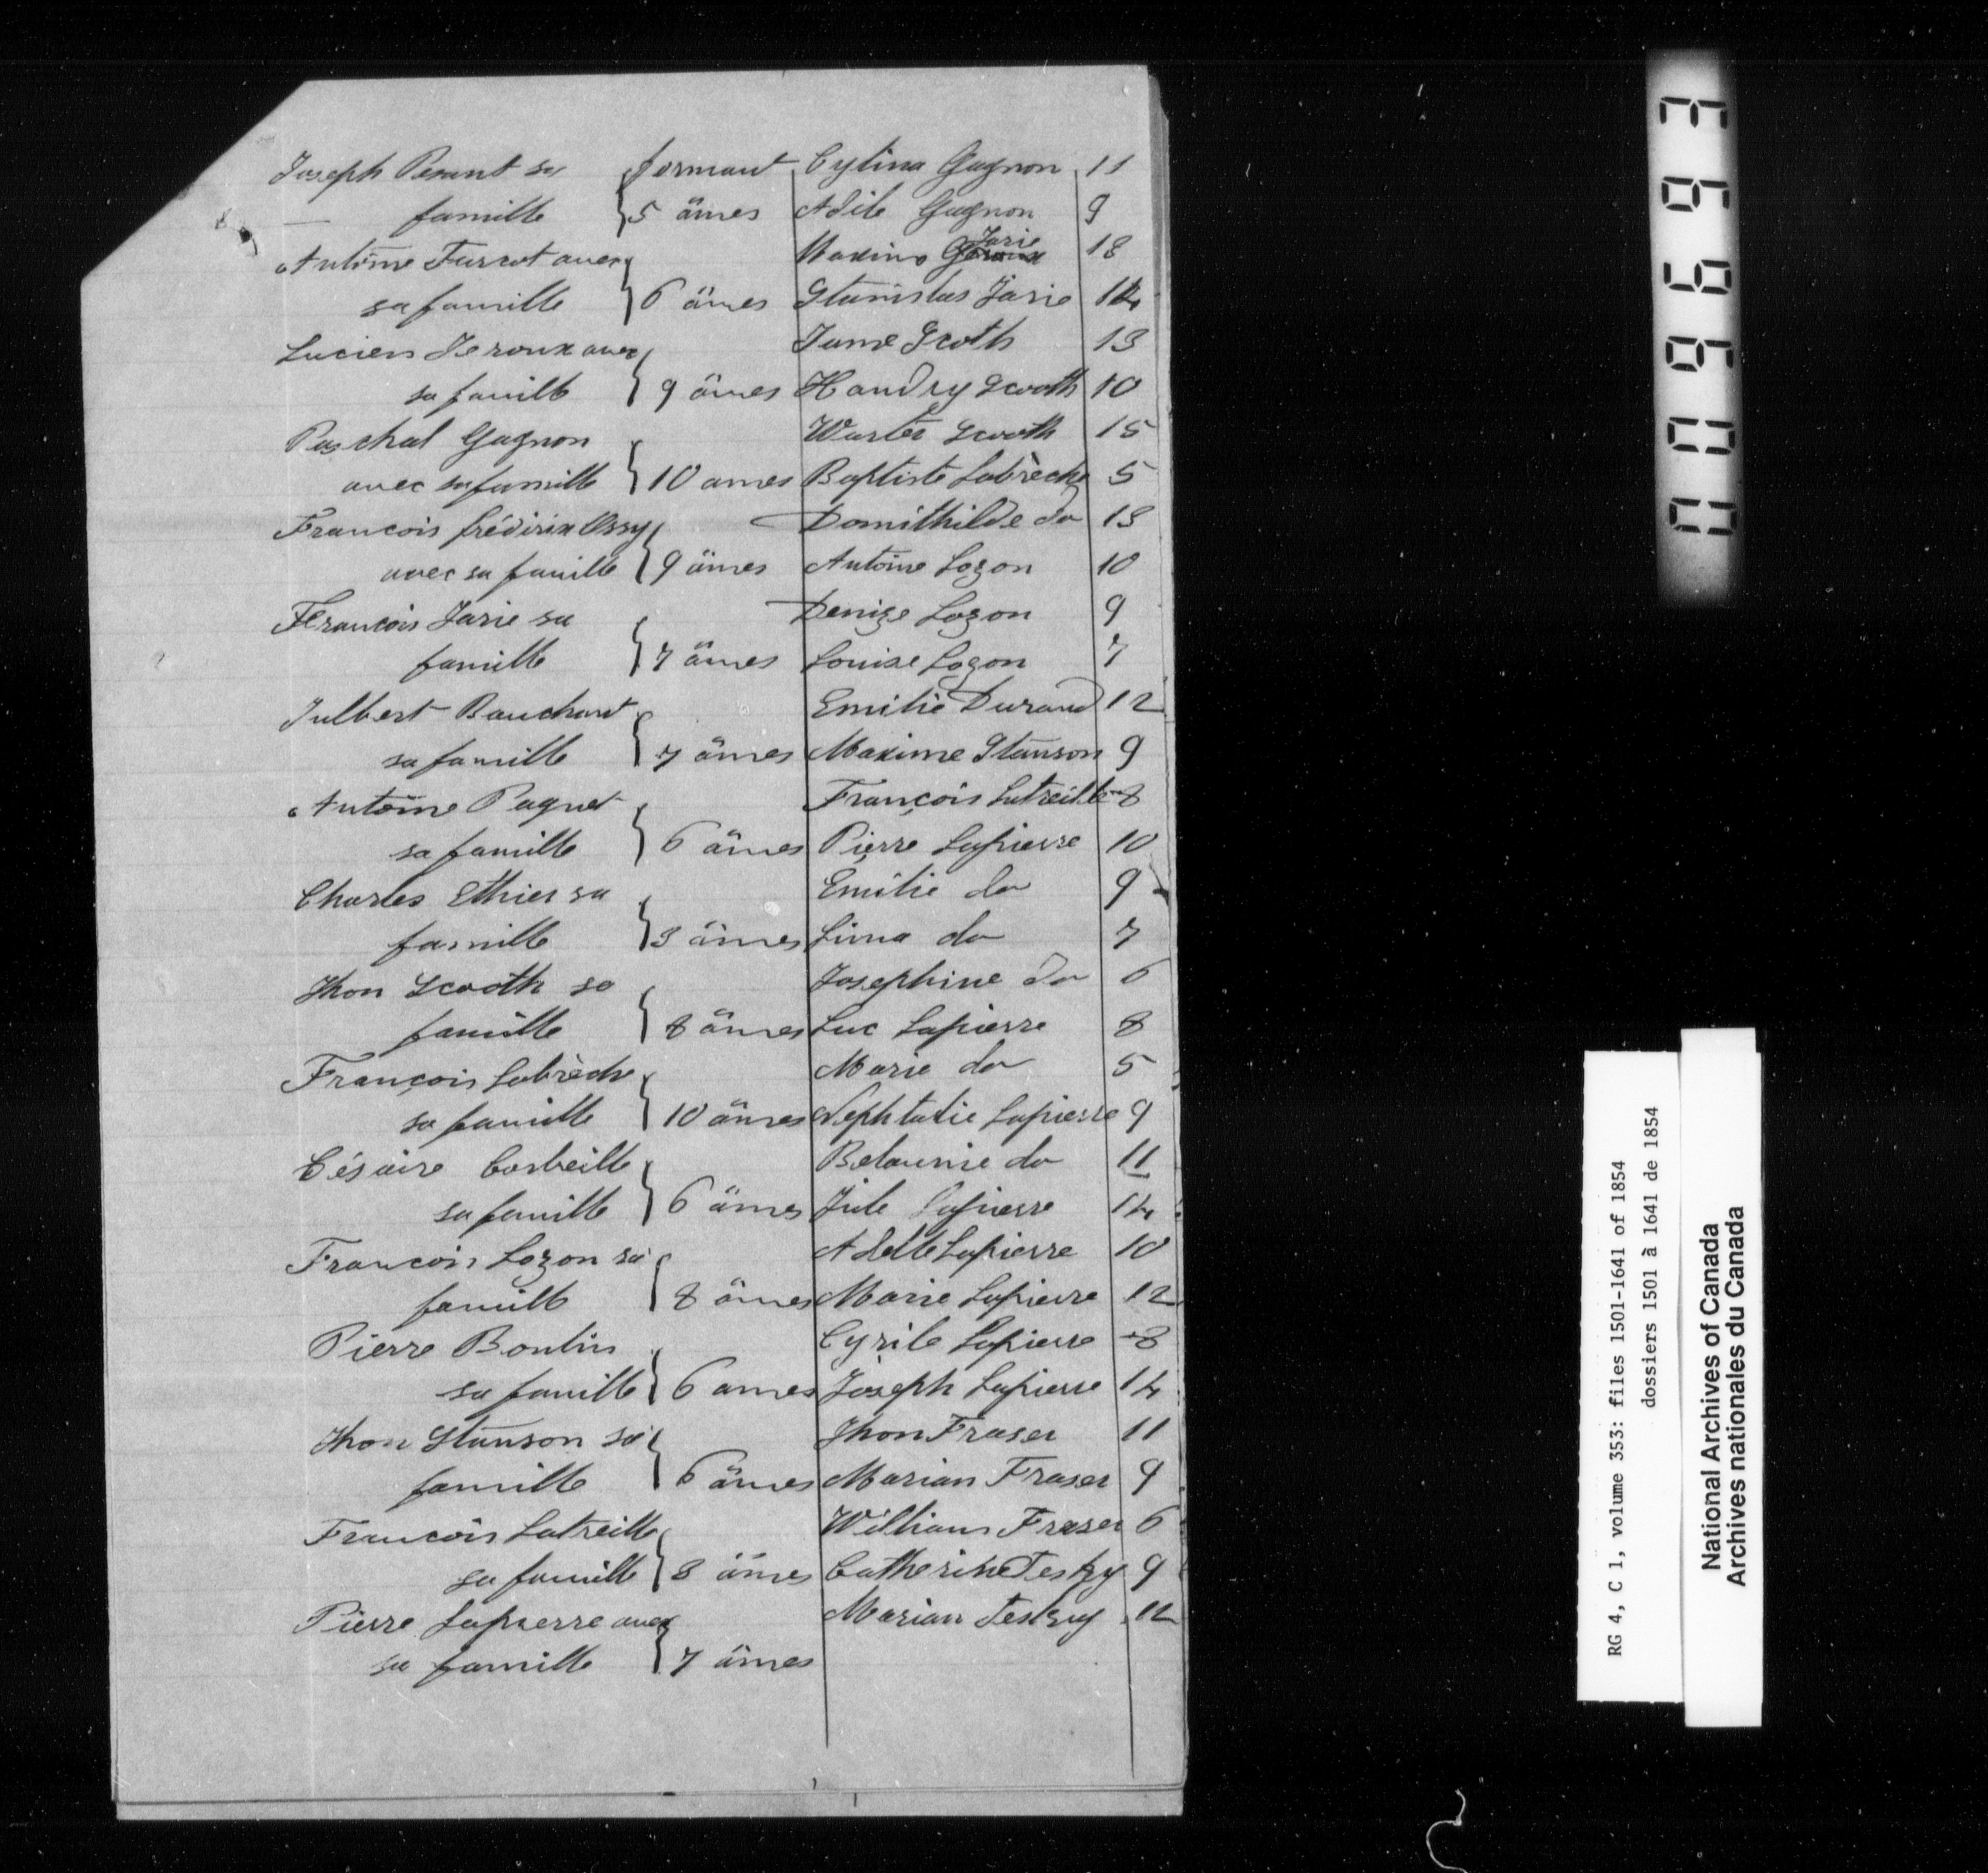 Joseph Pesant sa formant Cylina Gagnon 11
famille 5 âmes Adile Gagnon 9
Antoine Turcot avec Maxime Jarie 13
sa famille 6 âmes Stanislas Jarie 14
Lucien Jeroux avec Jame Scoth 13
sa famille 9 âmes Handry Scooth 10
Paschal Gagnon Warter Scooth 15
avec sa famille 10 ames Baptiste Labrèche 5
Francois frédirix Ossy Domithilde do 13
avec sa famille 9 âmes Antoine Lozon 10
Francois Jarie sa Denize Lozon 9
famille 7 âmes Louise Lozon 7
Julbert Bauchant Emilie Durand 12
sa famille 7 âmes Maxime Stanson 9
Antoine Paquet François Latreille 8
sa famille 6 âmes Pierre Lapierre 10
Charles Ethier sa Emilie do 9
famille 3 âmes Lima do 7
Jhon Scooth sa Josephine do 6
famille 8 âmes Luc Lapierre 8
François Labrèche Marie do 5
sa famille 10 âmes Nephtalie Lapierre 9
Césaire Corbeille Belaunie do 11
sa famille 6 âmes Jule Lapierre 14
Francois Lozon sa Adelle Lapierre 10
famille 8 âmes Marie Lapierre 12
Pierre Boulin Cyrile Lapierre 8
sa famille 6 ames Joseph Lapierre 14
Jhon Stanson sa Jhon Fraser 11
famille 6 âmes Marian Fraser 9
Francois Latreille William Fraser 6
sa famille 8 âmes Catherine Teskey 9
Pierre Lapierre avec Marian Teskey 12
sa famille 7 âmes
006993
RG 4, C 1, volume 353: files 1501-1641 of 1854
dossiers 1501 à 1641 de 1854
National Archives of Canada
Archives nationales du Canada